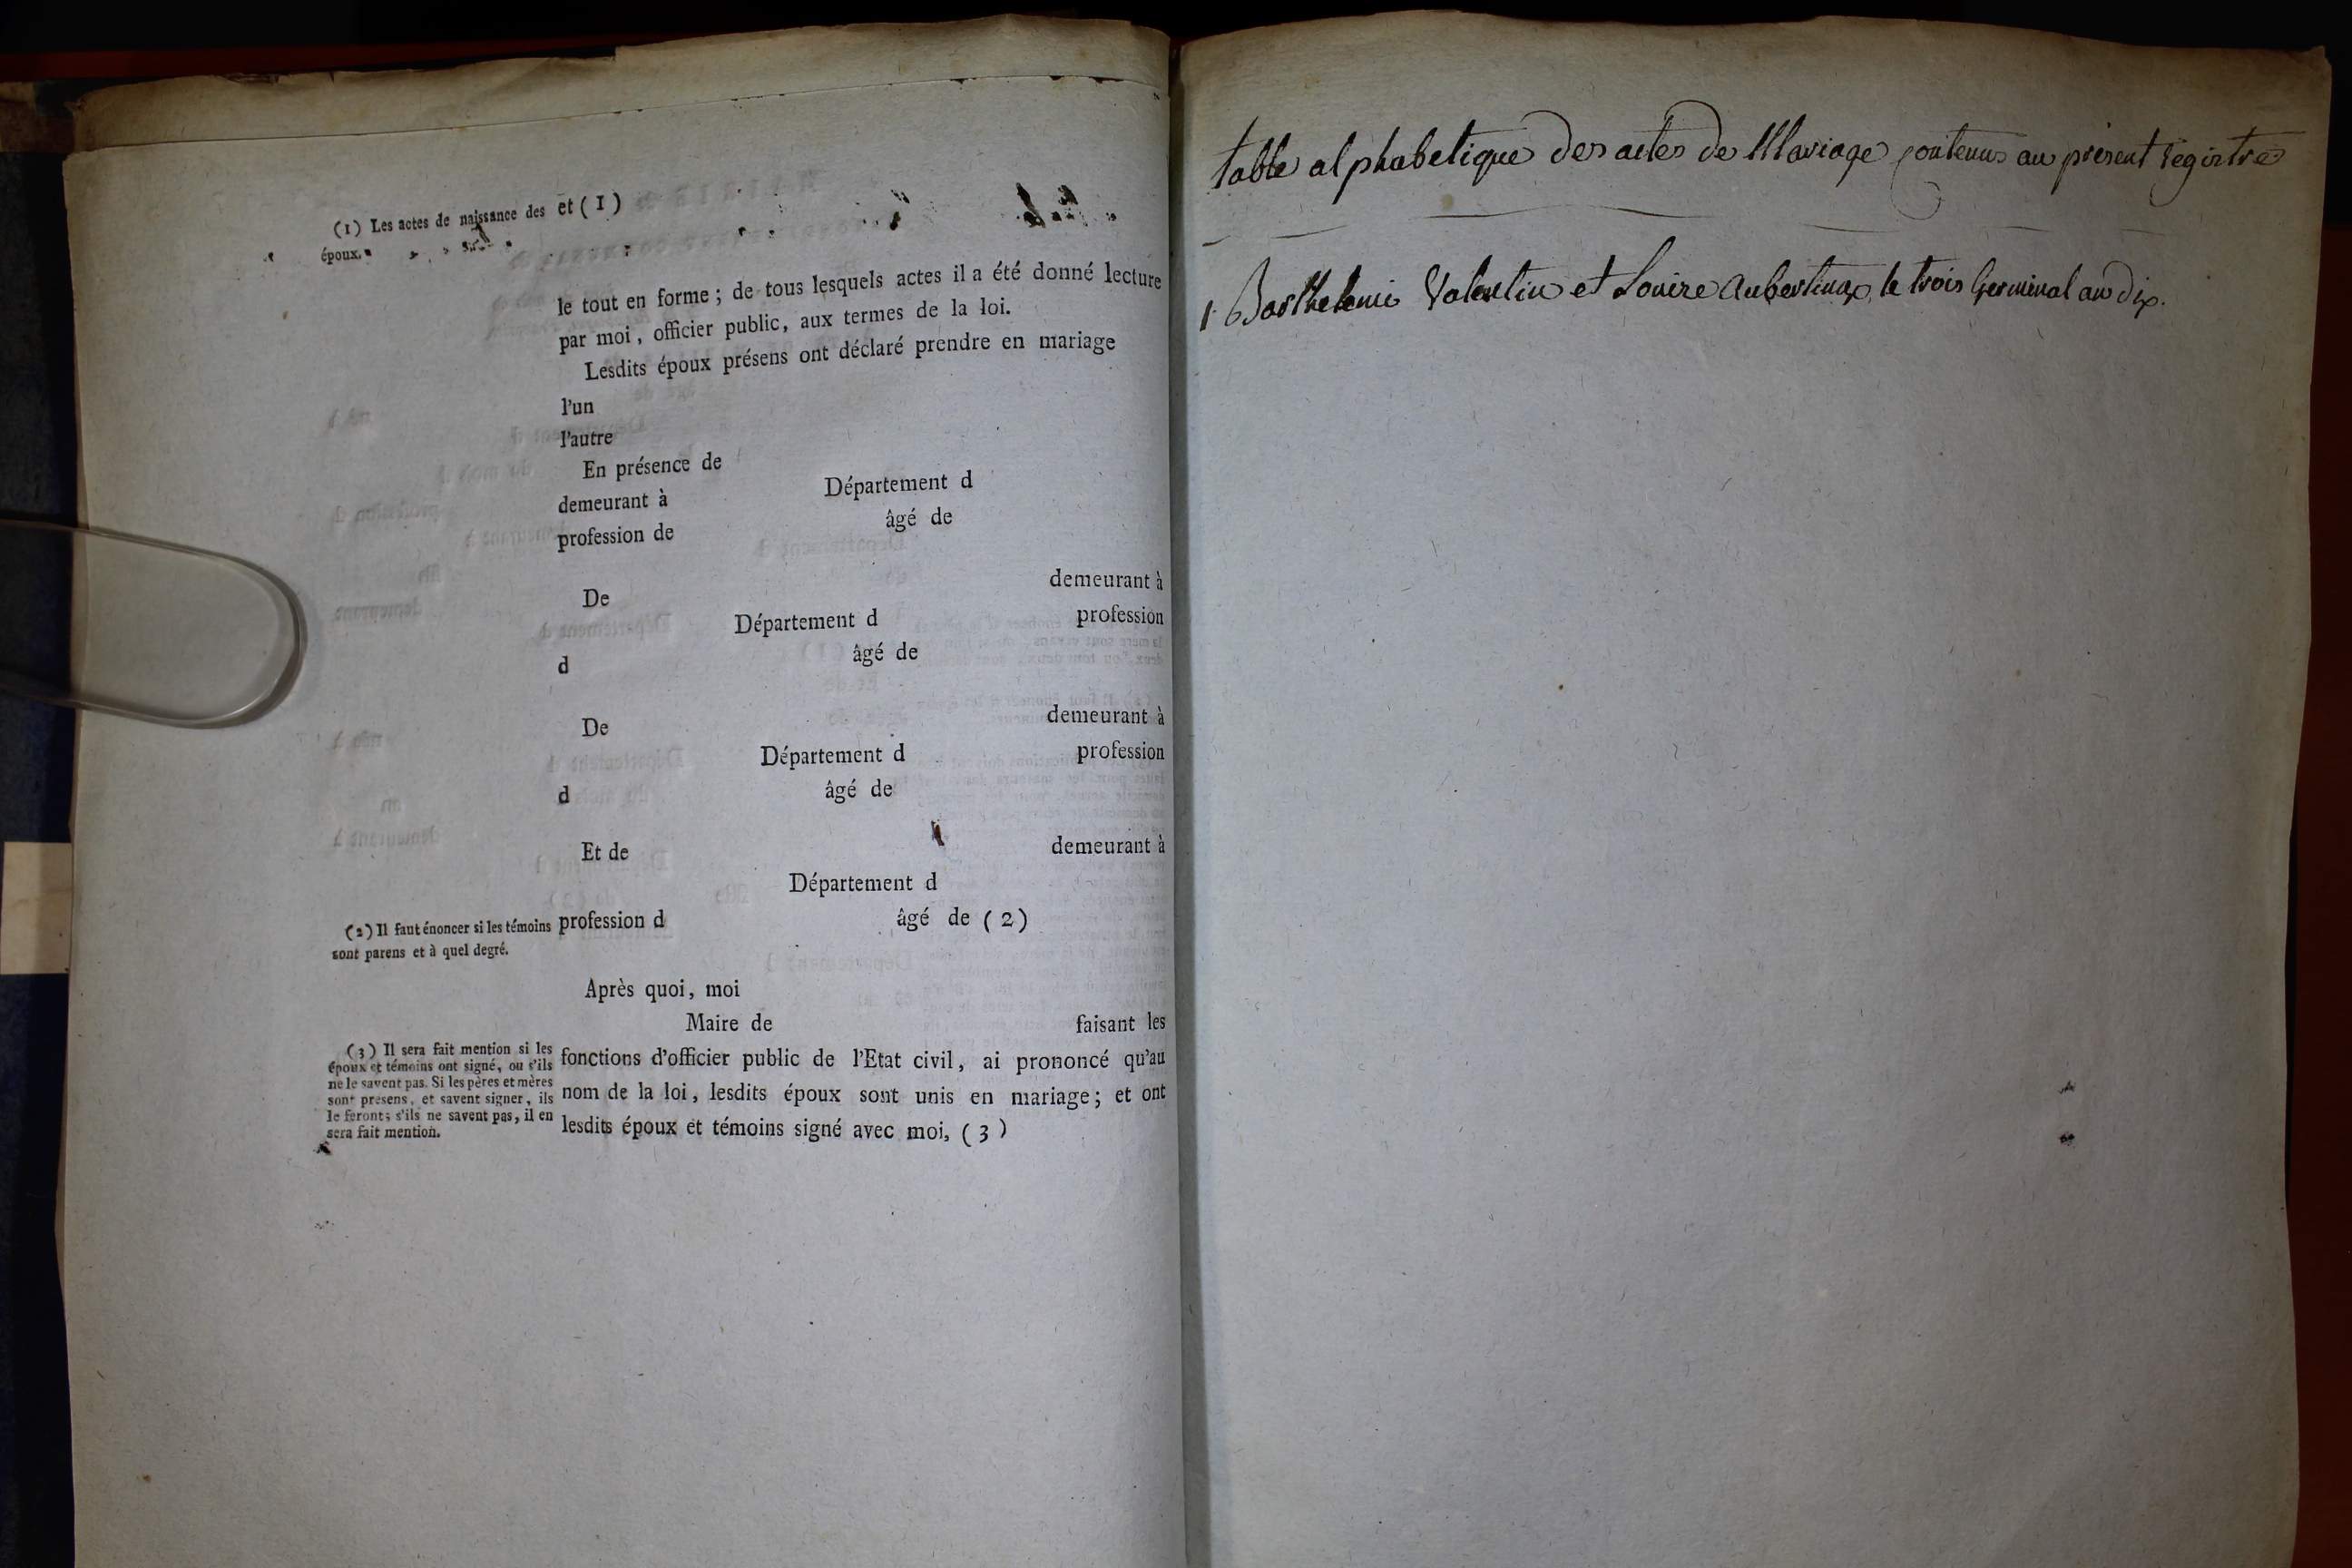 (1) Les actes de naissance des
époux.
et (1)
le tout en forme ; de tous lesquels actes il a été donné lecture
par moi, officier public, aux termes de la loi.
Lesdits époux présens ont déclaré prendre en mariage
l'un
l'autre
En présence de
demeurant à Département d
profession de âgé de
De demeurant à
Département d profession
d âgé de
De demeurant à
Département d profession
d âgé de
Et de demeurant à
Département d
profession d âgé de (2)
(2) Il faut énoncer si les témoins
sont parens et à quel degré.
Après quoi, moi
Maire de faisant les
fonctions d'officier public de l'Etat civil, ai prononcé qu'au
nom de la loi, lesdits époux sont unis en mariage; et ont
lesdits époux et témoins signé avec moi, (3)
(3) Il sera fait mention si les
époux et témoins ont signé, ou s'ils
ne le savent pas. Si les pères et mères
sont présens, et savent signer, ils
le feront; s'ils ne savent pas, il en
sera fait mention.
table alphabetique des actes de Mariage contenus au présent registre
1. Barthelemi Valentin et Louise Aubertin, le trois Germinal an dix.